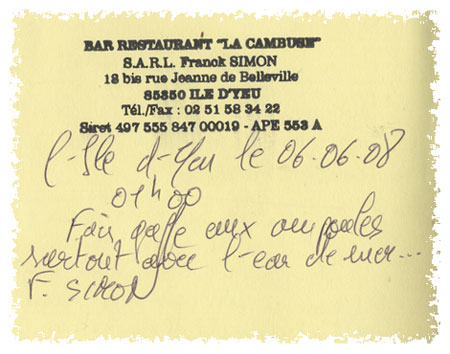 BAR RESTAURANT "LA CAMBUSE"
S.A.R.L. Franck SIMON
18 bis rue Jeanne de Belleville
85350 ILE D'YEU
Tél./Fax : 02 51 58 34 22
Siret 497 555 847 00019 - APE 553 A
l-Ile d-Yeu le 06.06.08
01h00
Fais gaffe aux ampoules
surtout avec l-eau de mer...
F. SIMON